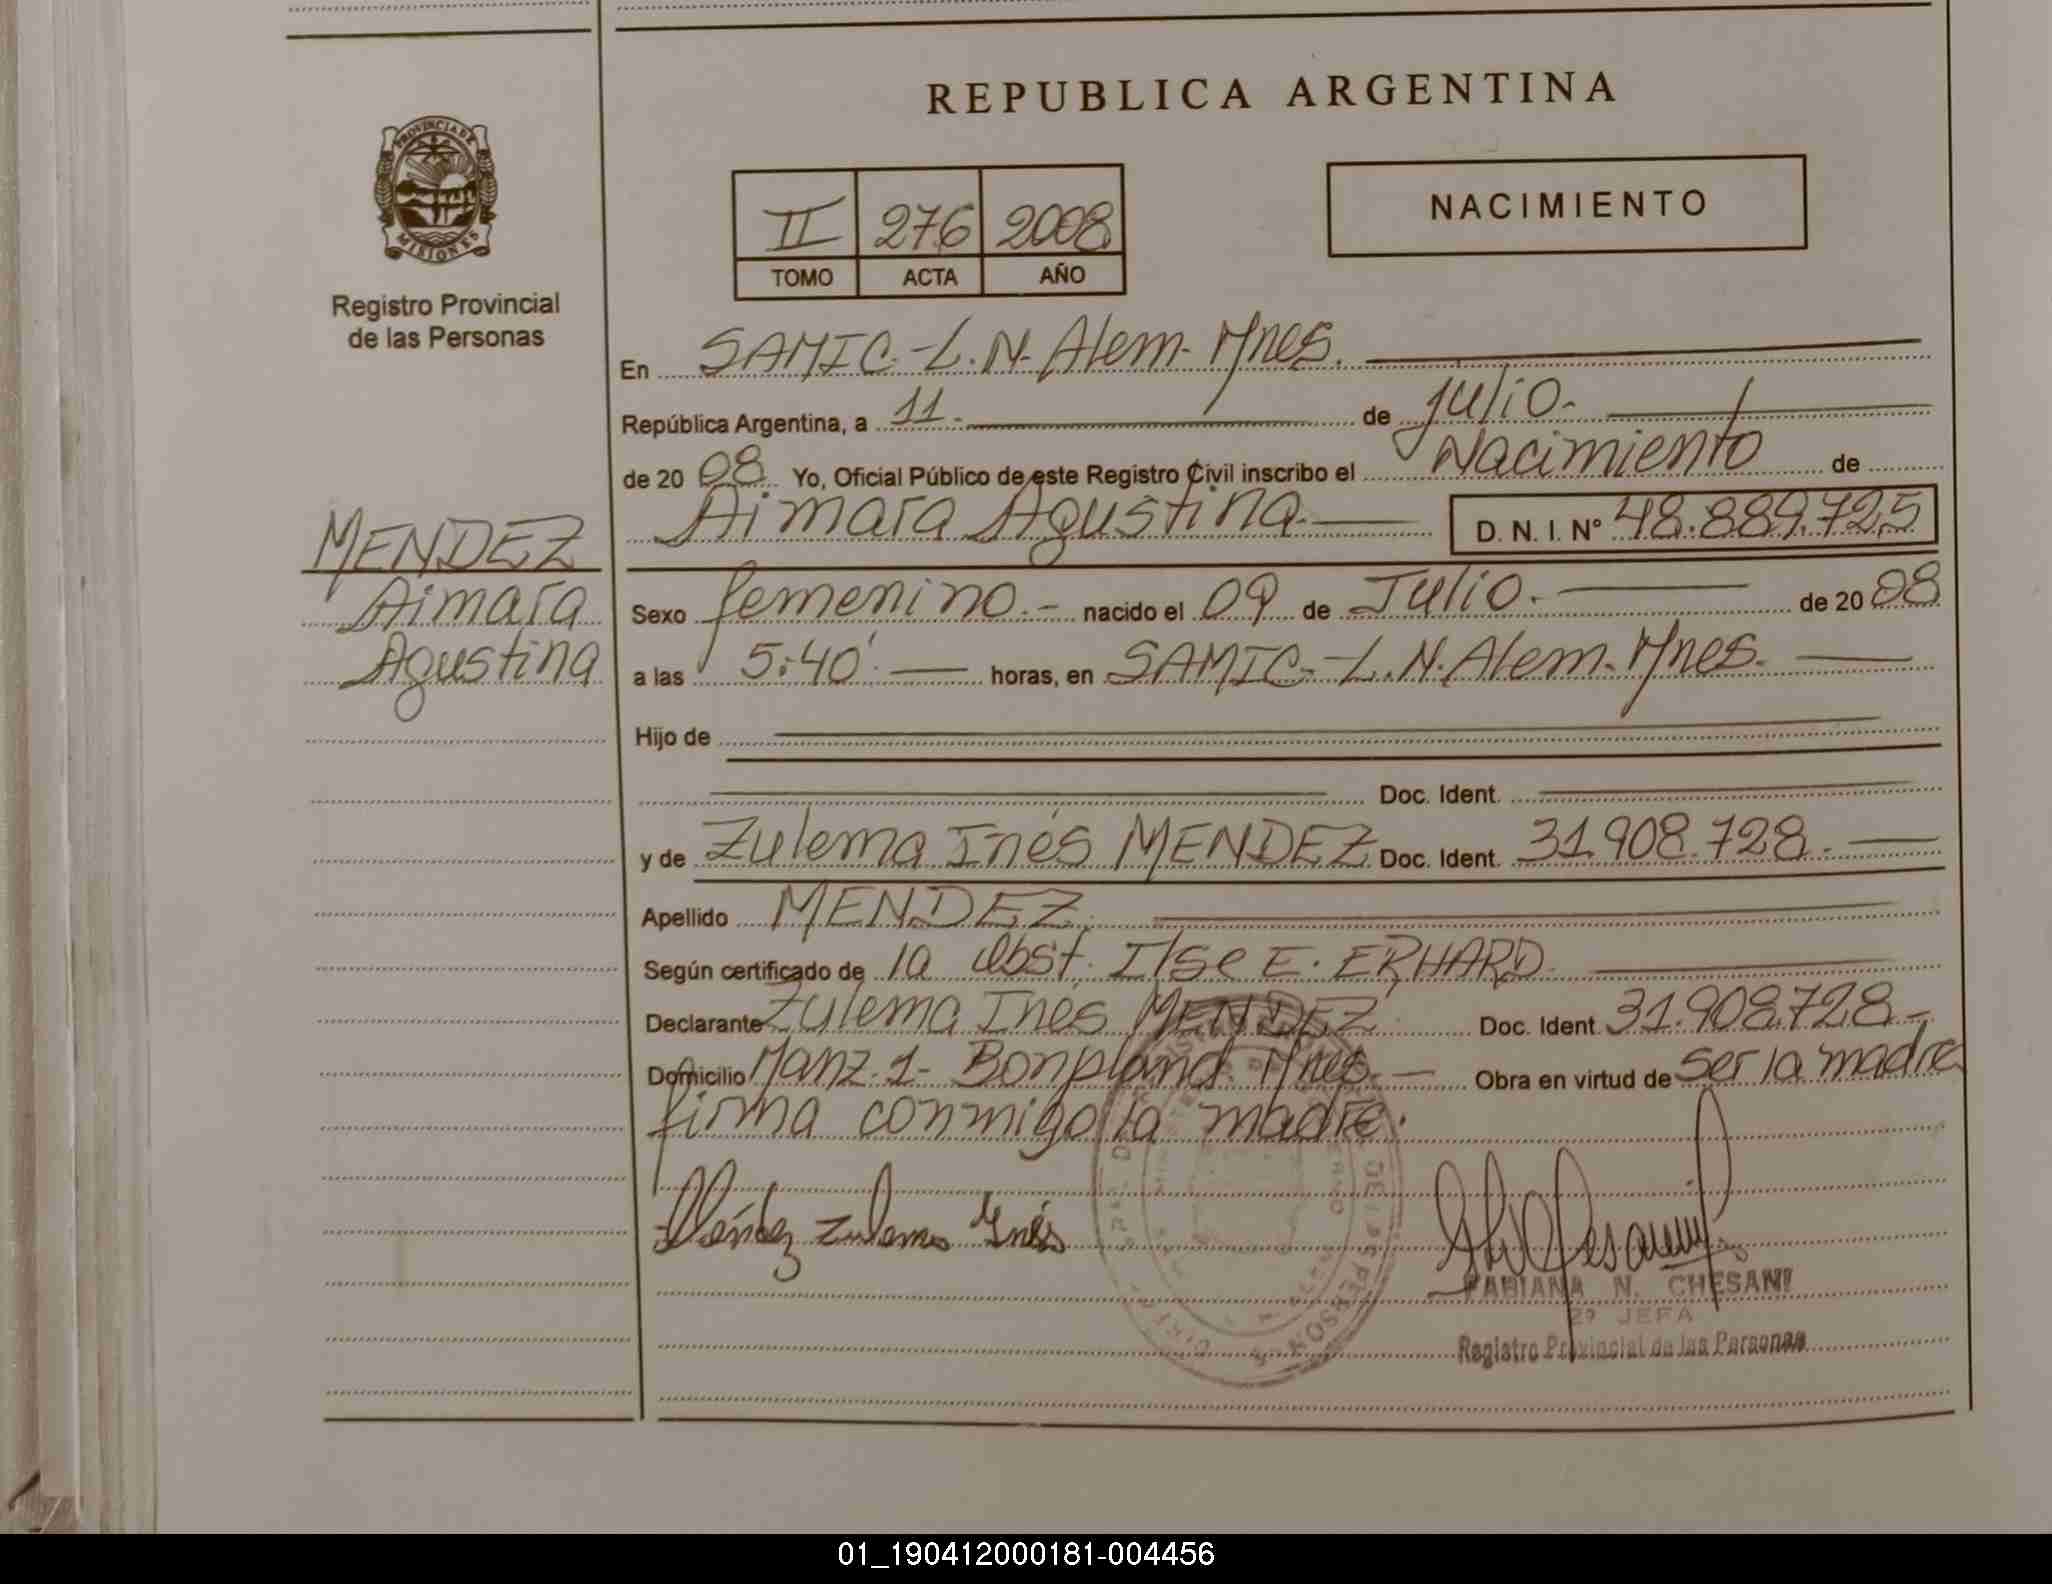 REPUBLICA ARGENTINA
PROVINCIA DE
MISIONES
Registro Provincial
de las Personas
II 276 2008
TOMO ACTA AÑO
NACIMIENTO
En SAMIC.-L.N.Alem-Mnes.
República Argentina, a 11.- de julio.-
de 20 08 Yo, Oficial Público de este Registro Civil inscribo el Nacimiento de
Aimara Agustina.- D. N. I. N° 48.889.725
MENDEZ
Aimara
Agustina
Sexo femenino.- nacido el 09 de Julio.- de 20 08
a las 5:40' horas, en SAMIC.-L.N.Alem.Mnes.
Hijo de
Doc. Ident.
y de Zulema Inés MENDEZ Doc. Ident. 31.908.728.-
Apellido MENDEZ.
Según certificado de la Obst. Ilse E. ERHARD
Declarante Zulema Inés MENDEZ Doc. Ident. 31.908.728-
Domicilio Manz.1- Bonpland. Mnes.- Obra en virtud de ser la madre
firma conmigo la madre.
Méndez Zulema Inés
FABIANA N. CHESANI
2ª JEFA
Registro Provincial de las Personas
01_190412000181-004456